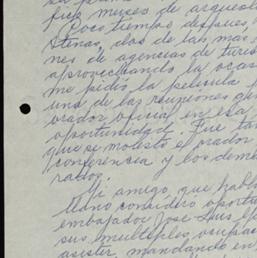 fico museo de arqueolo
Poco tiempo despues,
Atenas, dos de las mas
nes de agencias de turis
aprovechando la ocas
me pidio la pelicula
una de las reuniones que
orador oficial en esa
oportunidad. Fue tan
que se molestó el orador
conferencia y los dem
rador.
Mi amigo, que habl
llano consideró oportu
embajador Jose Luis
sus multiples ocupac
asistir, mandando en